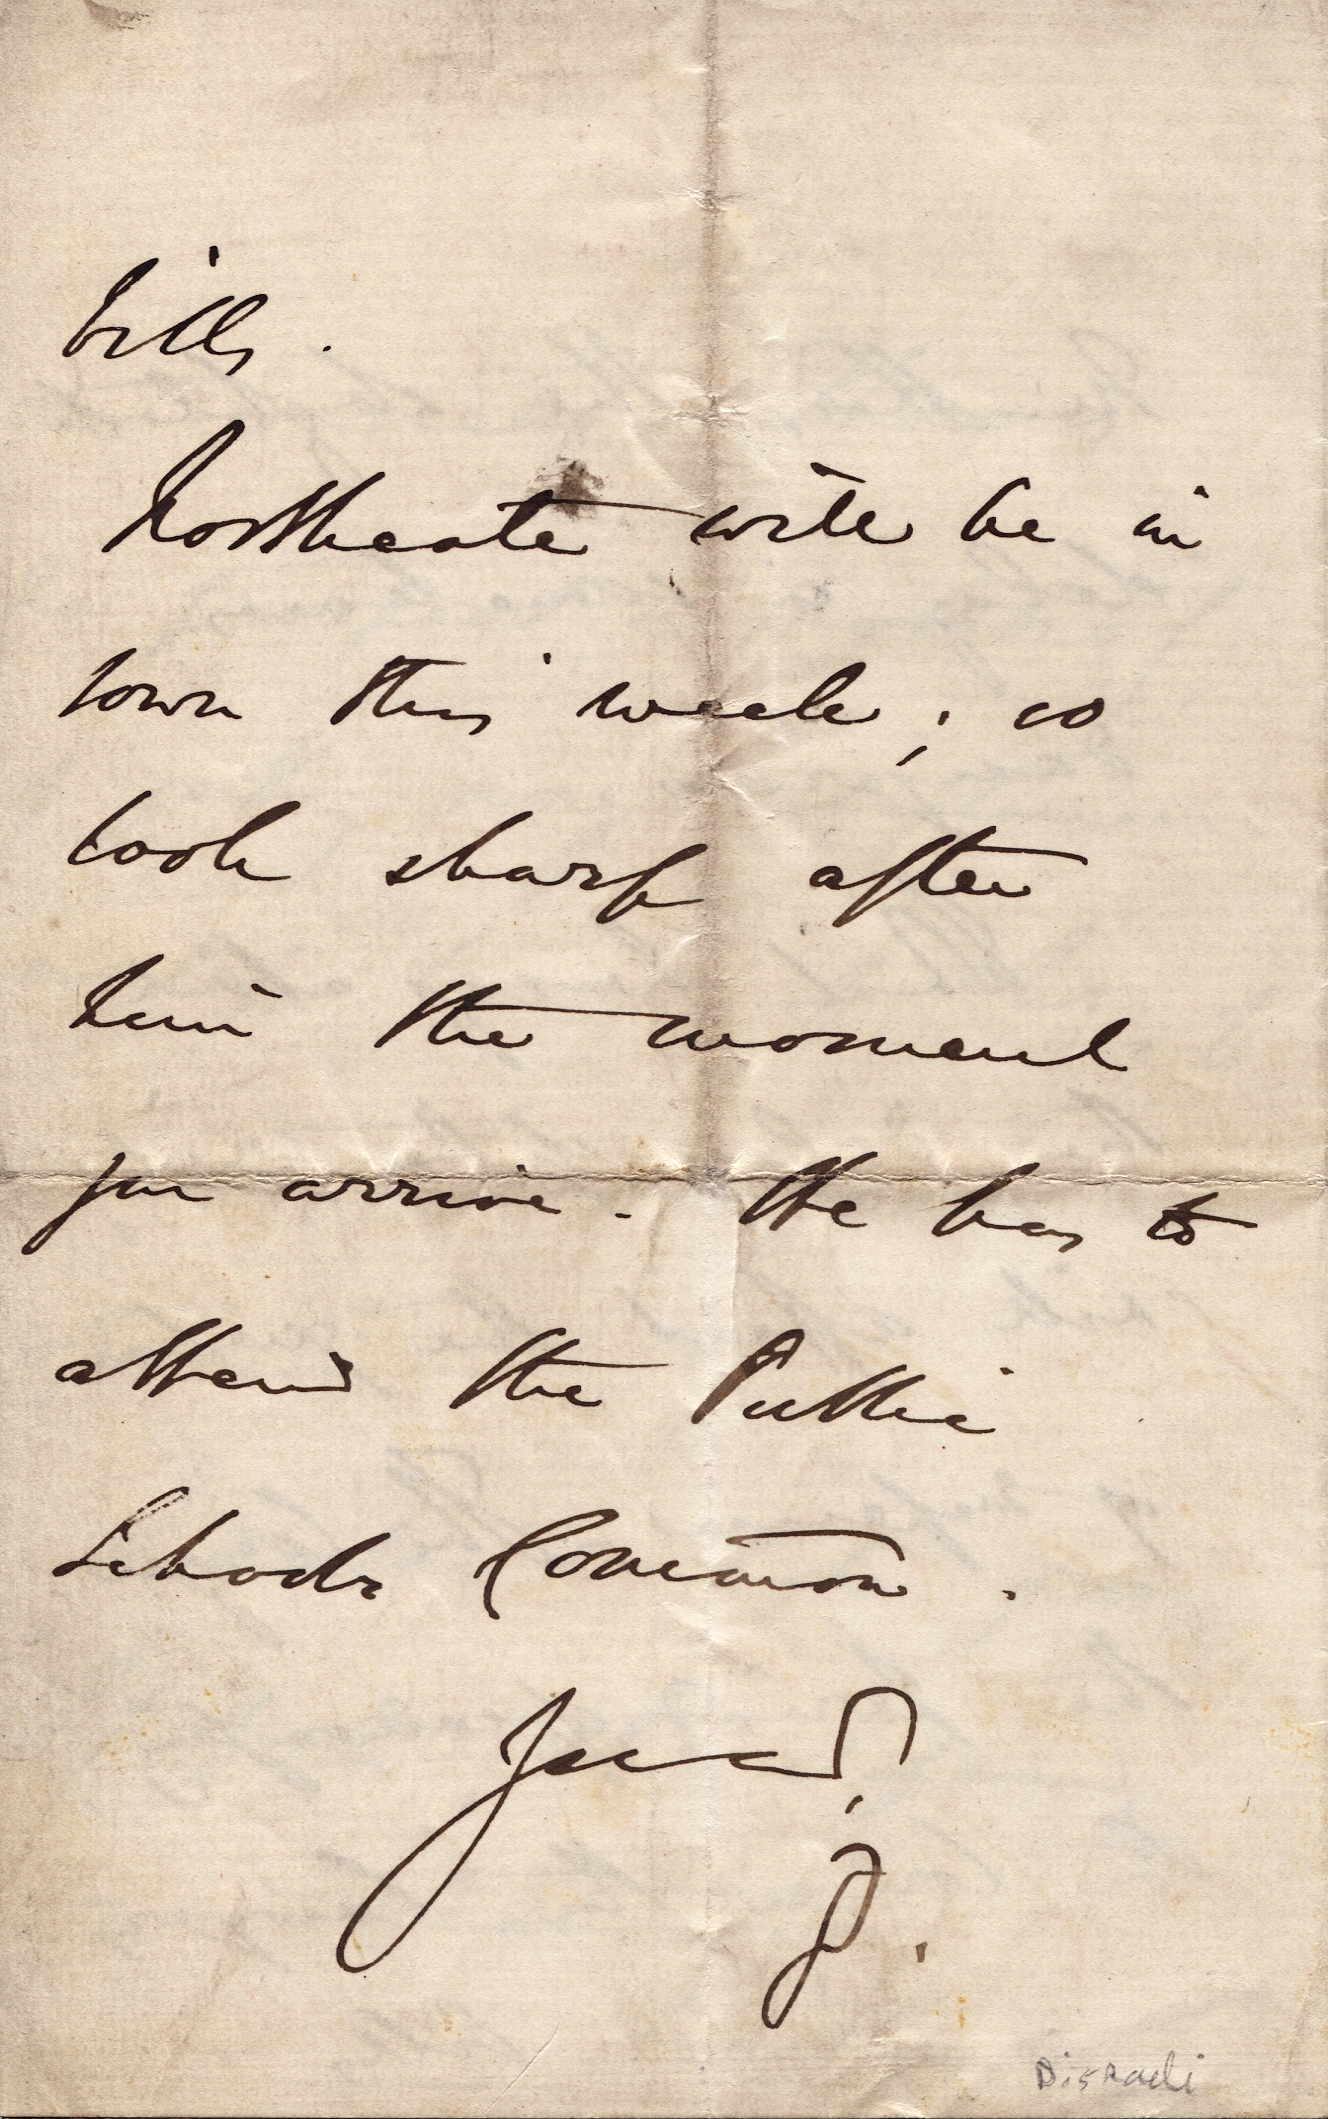 bills.
Northcote will be in
town this week; so
look sharp after
him the moment
you arrive. He has to
attend the Public
Schools Commission.
Yours,
D.
Disraeli